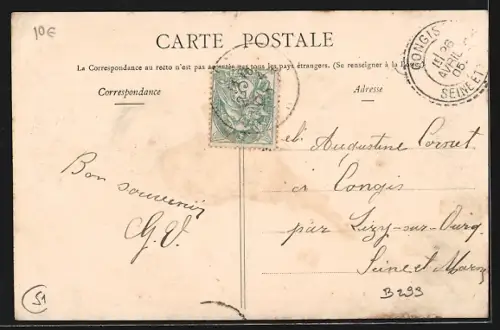 10€
CARTE POSTALE
La Correspondance au recto n'est pas acceptée par tous les pays étrangers. (Se renseigner à la Poste)
Correspondance
Adresse
CONGIS
26
AVRIL
06
SEINE ET
Augustine Cornet
à Congis
par Lizy-sur-Ourcq
Seine et Marne
Bon souvenir
G. V.
B299
51